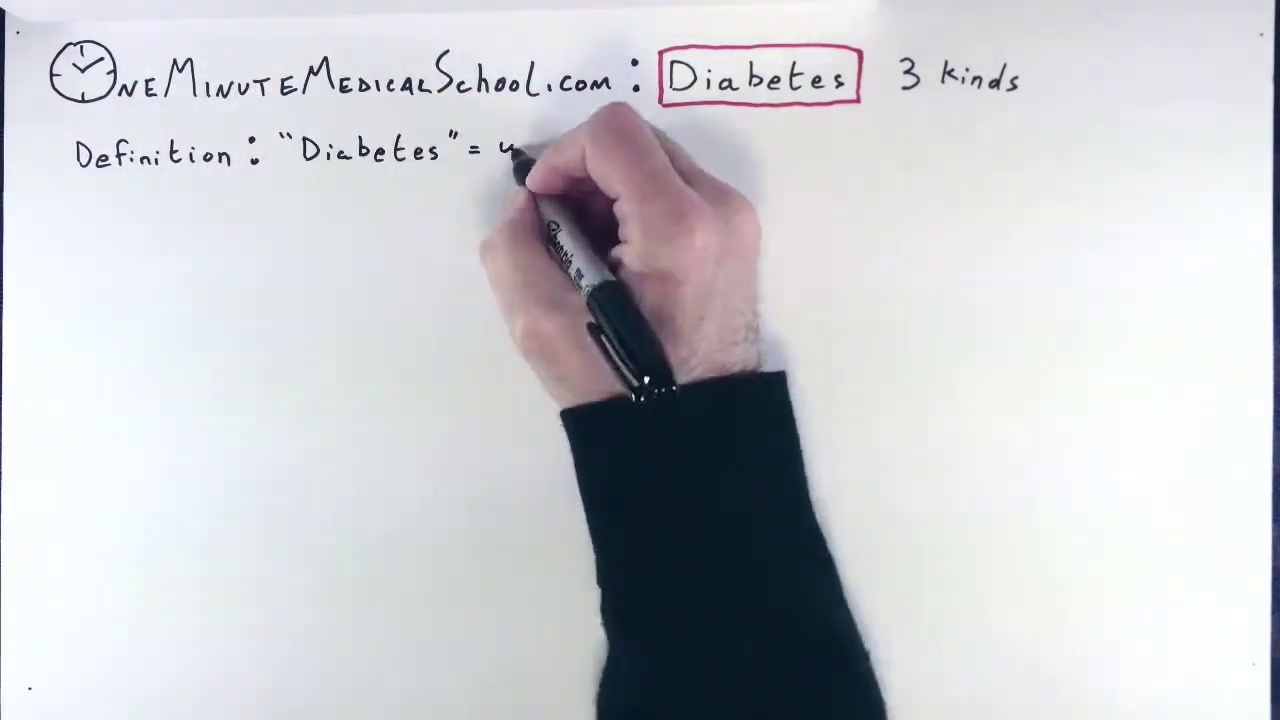 OneMinuteMedicalSchool.com : Diabetes 3 kinds
Definition : "Diabetes" =
Sharpie